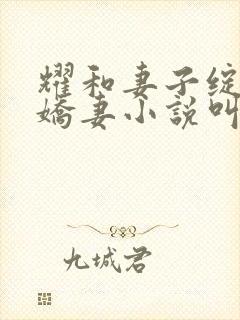 耀和妻子綻
嬌妻小說叫
九城君